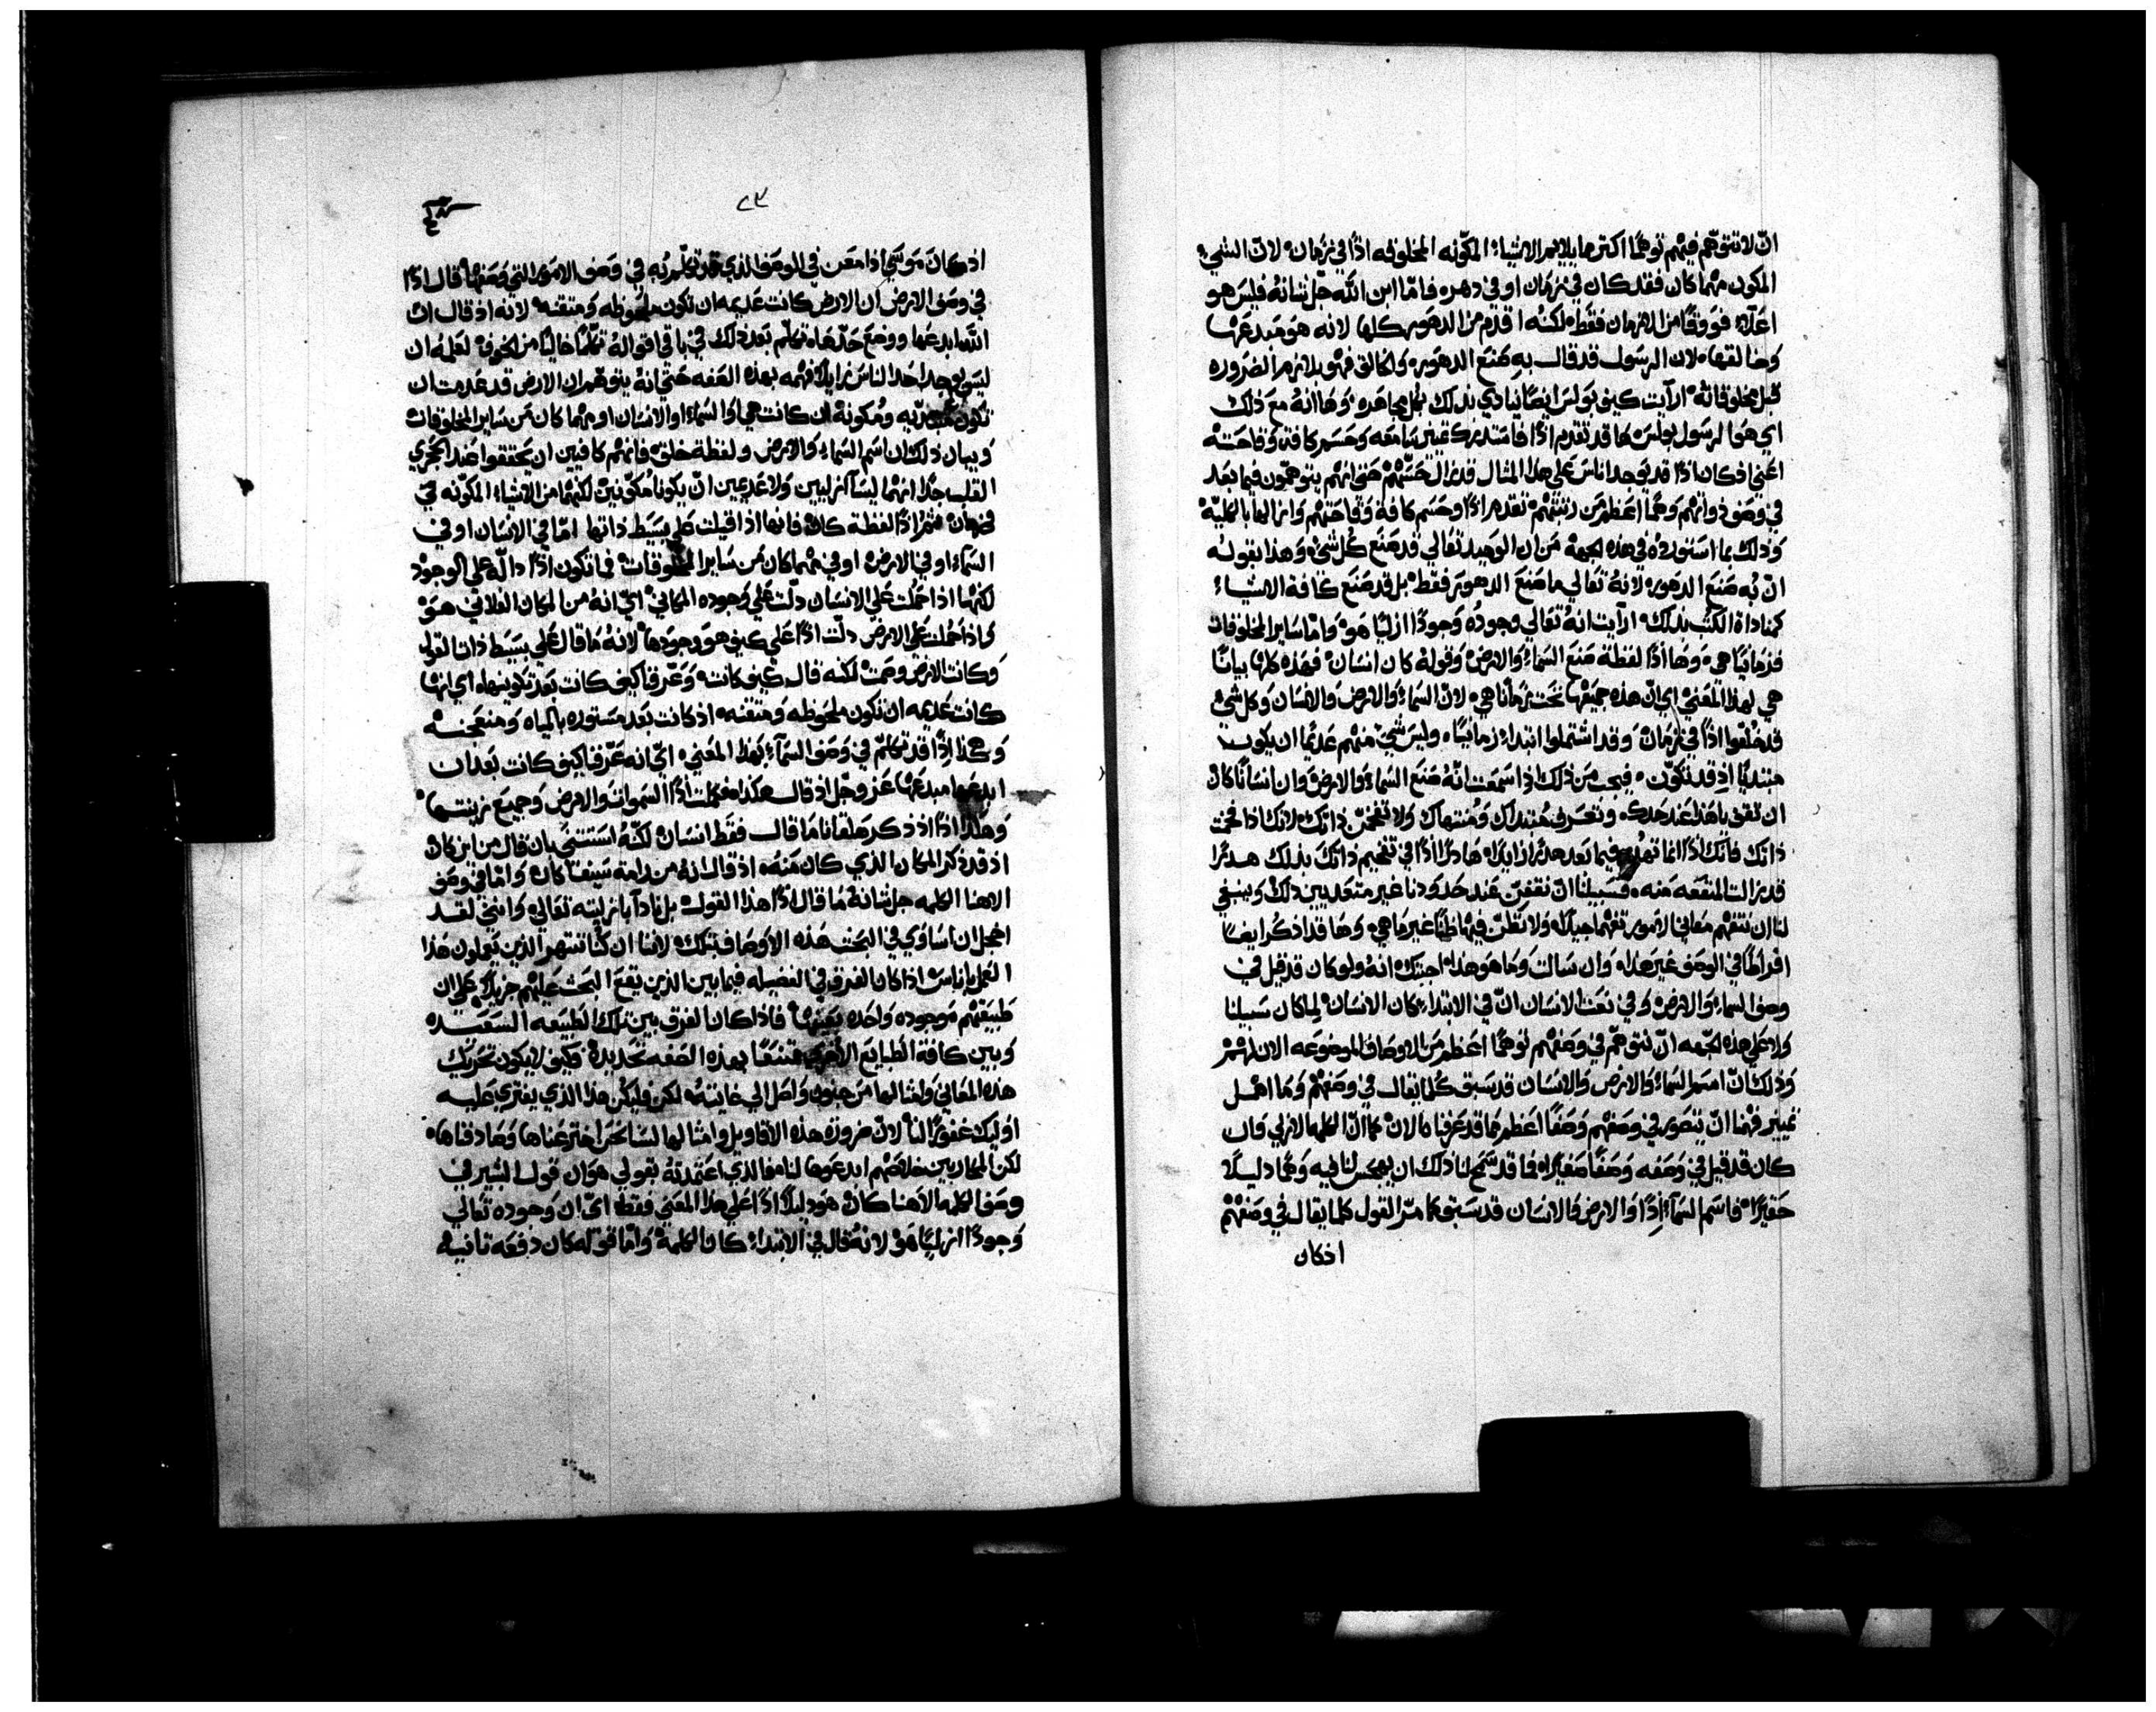 ان لا نتوهم فيهم توهما اكتر مما يلايم الاشياء المكونه المخلوقه اذا في زمان لان الشي
المكون مهما كان فقد كان في زمان او في دهر فاما ابن الله جل شانه فليس هو
اعلا فووقا من الازمان فقط لكنه اقدم من الدهور كلها لانه هو مبدعها
وخالقها لان الرسول قد قال به صنع الدهور والخالق فهو بلازم الضروره
قبل مخلوقاته ارايت كيف بولس ايضا ينادي بذلك بكل مجاهده وها انه مع ذلك
اي هو الرسول بولس ها قد تقدم اذا فاستدرك غير سامعه وحسم كافة وقاحته
اعني اذ كان اذا قد يوجد اناس على هذا المثال قد زال حسهم حتى انهم يتوهمون فيما بعد
في وصف ذواتهم وهما اعظم من رتبتهم تقدم اذا وحسم كافة وقاحتهم وازالها بالكليه
وذلك بما استورده في هذه الجهة من ان الوحيد تعالي قد صنع كل شي وهذا بقوله
ان به صنع الدهور لانه تعالي ما صنع الدهور فقط بل قد صنع كافة الاشياء
كمناداة الكتب بذلك ارايت انه تعالي وجوده وجودا ازليا هو واما ساير المخلوقات
فزمانيا هي وها اذا لفظة صنع السماء والارض وقوله كان انسان فهذه كلها بيانا
هي لهذا المعني اي ان هذه جميعها تحت زمان هي لان السماء والارض والانسان وكل شي
قد خلقوا اذا في زمان وقد اشتملوا ابتداء زمانيا وليس شي منهم عديما ان يكون
مبتديا اذ قد تكون فيجب من ذلك اذا سمعت انه صنع السماء والارض وان انسانا كان
ان تقف يا هذا عند حدك وتعرف مبتداك ومنتهاك ولا تفخمن ذاتك لانك اذا فخمت
ذاتك فانك اذا انما تهدر فيما بعد هدرا زايدا هادرا اذا في تفخيم ذاتك بذلك هدرا
قد زالت المنفعه منه فسبيلنا ان نقفن عند حدودنا غير متعديين ذلك وينبغي
لنا ان نتفهم معاني الامور تفهما جيدا ولا نظن فيها ظنا غير ما هي وها قد اذكر ايضا
افراطا في الوصف غير هذا وان سالت وما هو هذا اجبتك انه ولو كان قد قيل في
وصف السماء والارض وفي نعت الانسان ان في الابتداء كان الانسان لما كان سبيلنا
ولا على هذه الجهه ان نتوهم في وصفهم توهما اعظم من الاوصاف الموضوعه الان لهم
وذلك ان اسم السماء والارض والانسان قد سبق كلما يقال في وصفهم وما اهمل
تمييز فهمنا ان يتصور في وصفهم وصفا اعظم مما قد عرفناه الان كما ان الكلمه الازلي وان
كان قد قيل في وصفه وصفا صغيرا فما قد سمح لنا ذلك ان يهجس لنا فيه وهما دليلا
حقيرا فاسم السماء اذا والارض والانسان قد سبق كما مر القول كلما يقال في وصفهم
اذ كان
٨٣
اذ كان موسى اذا معن في الوصف الذي قد تكلم به في وصف الامور التي وصفها قال اذا
في وصف الارض ان الارض كانت عديمه ان تكون ملحوظه ومتقنه لانه اذ قال ان
الله ابدعها ووضع حدها تكلم بعد ذلك في باقي اقواله تكلما خاليا من الخوف لعلمه ان
ليس يوجد احد الناس زايلا فهمه بهذه الصفه حتى انه يتوهم ان الارض قد عدمت ان
تكون مبتديه ومكونه ان كانت هي او السماء او الانسان او مهما كان من ساير المخلوقات
وبيان ذلك ان اسم السماء والارض ولفظة خلق فانهم كافيين ان يحققوا عند الحجري
القلب جدا انهما ليسا ازليين ولا عديمين ان يكونا مكونين لكنهما من الاشياء المكونه في
زمان فثم اذا لفظة كان فانها اذا قيلت على بسيط ذاتها اما في الانسان او في
السماء او في الارض او في مهما كان من ساير المخلوقات فما تكون اذا داله على الوجود
لكنها اذا حملت على الانسان دلت على وجوده المكاني اي انه من المكان الفلاني هو
واذا حملت على الارض دلت اذا على كيف هو وجودها لانه ما قال على بسيط ذات القول
وكانت الارض وصمت لكنه قال كيف كانت وعرفنا كيف كانت بعد تكوينها اي انها
كانت عديمه ان تكون ملحوظه ومتقنه اذ كانت بعد مستوره بالمياه ومنعجنه
وهكذا اذا قد تكلم في وصف السماء بهذا المعني اي انه عرفنا كيف كانت بعد ان
ابدعها مبدعها عز وجل اذ قال هكذا فكملت اذا السموات والارض وجميع زينتهما
وهكذا اذا اذ ذكر هلقانا ما قال فقط انسان لكنه استثنى بان قال من اين كان
اذ قد ذكر المكان الذي كان منه اذ قال انه من رامة سيفا كان واما في وصف
الاهنا الكلمه جل شانه ما قال اذا هذا القول بل نادا بازليته تعالي وانني لقد
اخجل ان اساوي في البحث هذه الاوصاف بتلك لاننا ان كنا ننتهر الذين يعملون هذا
العمل باناس اذا كان الفرق في الفضيله فيما بين الذين يقع البحث عليهم جزيلا على ان
طبيعتهم موجوده واحده بعينها فاذا كان الفرق بين تلك الطبيعه السعيده
وبين كافة الطبايع الاخرى ممتنعا بهذه الصفه تحديده وكيف لا يكون تحريك
هذه المعاني وامثالها من جنون واصل الي غايته لكن فليكن هذا الذي يفتري عليه
اوليك غفورا لنا لان ضرورة هذه الاقاويل وامثالها لسنا نحن اخترعناها وصادقناها
لكن المحاربين خلاصهم ابدعوها لنا فما الذي اعتمدته بقولي هو ان قول البشير في
وصف الكلمه الاهنا كان هو دليلا اذا على هذا المعني فقط اي ان وجوده تعالي
وجودا ازليا هو لانه قال في الابتداء كان الكلمة واما قوله كان دفعه ثانيه